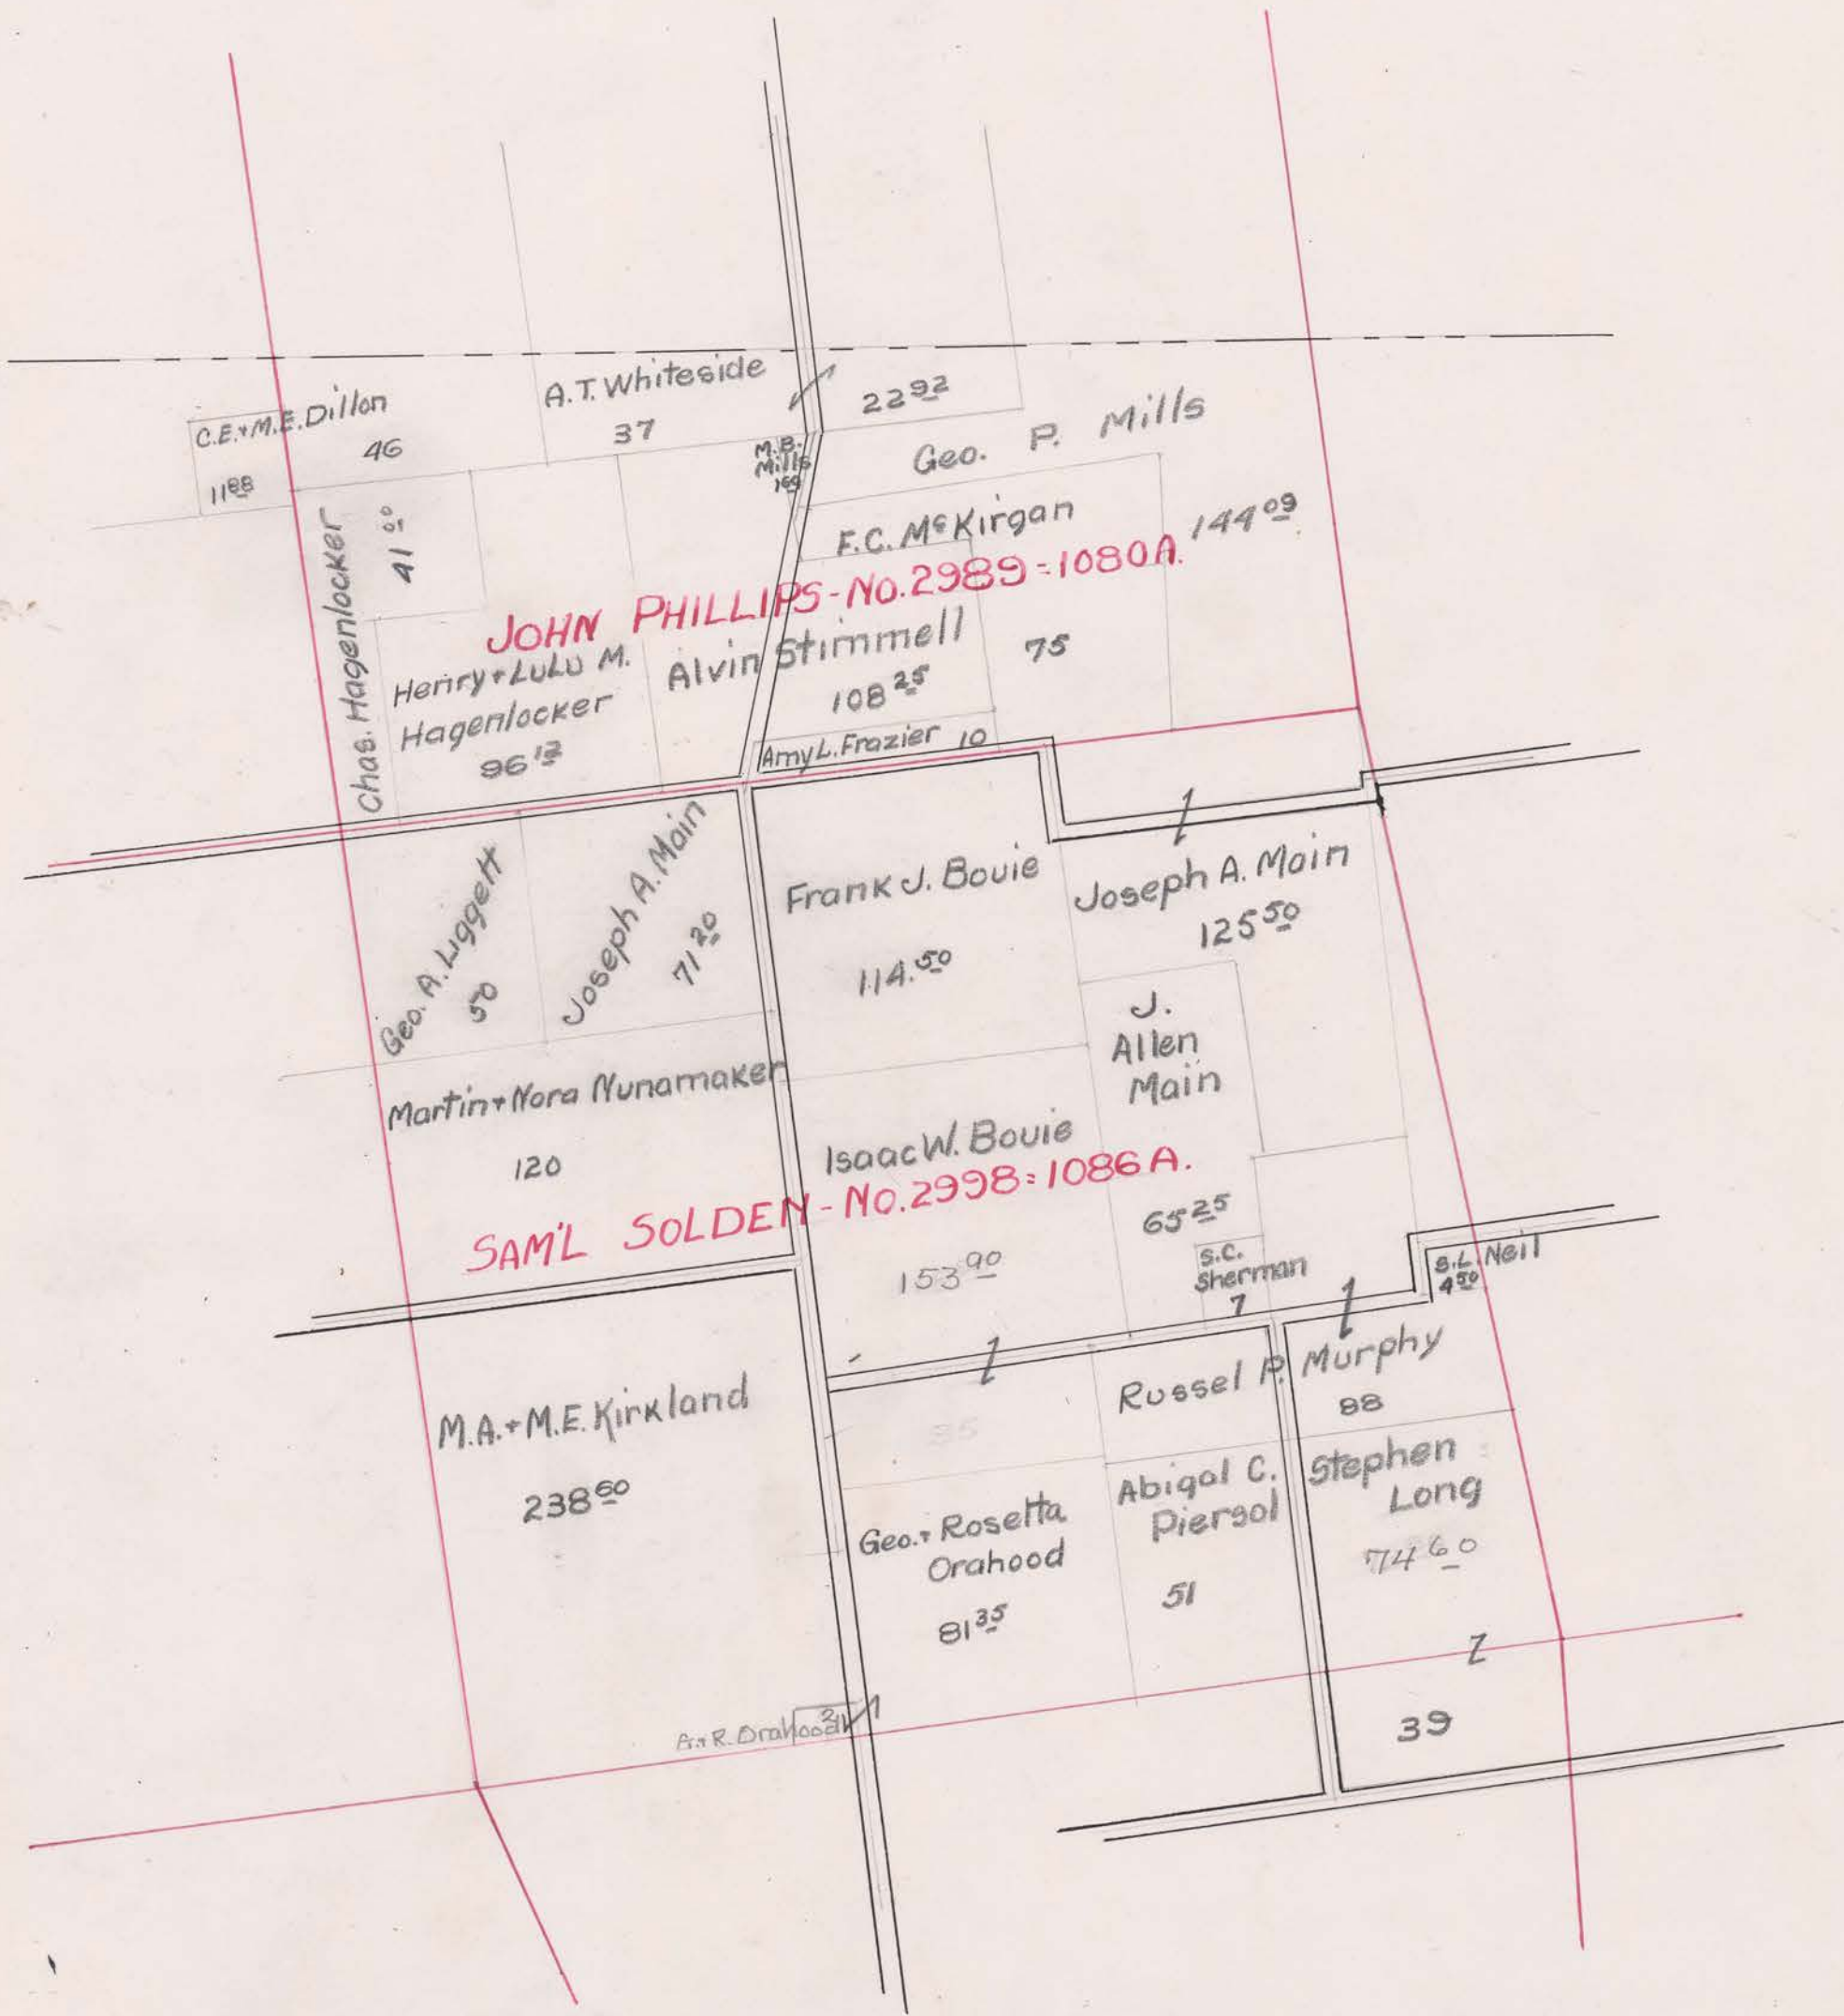 A.T. Whiteside
37
22 92
C.E.+M.E. Dillon
46
11 88
M.B.
Mills
1 69
Geo. P. Mills
144 09
Chas. Hagenlocker
41 00
F.C. McKirgan
75
JOHN PHILLIPS - No. 2989 = 1080A.
Henry + LuLu M.
Hagenlocker
96 12
Alvin Stimmell
108 25
Amy L. Frazier 10
Geo. A. Liggett
50
Joseph A. Main
71 20
Frank J. Bouie
114.50
Joseph A. Main
125 50
J.
Allen
Main
65 25
Martin + Nora Nunamaker
120
Isaac W. Bouie
153 90
SAM'L SOLDEN - No. 2998 = 1086 A.
S.C.
Sherman
7
S.L. Neil
4 50
M.A. + M.E. Kirkland
238 60
Russel P. Murphy
88
Geo. + Rosetta
Orahood
81 35
Abigal C.
Piersol
51
Stephen
Long
74 60
G. + R. Orahood
39